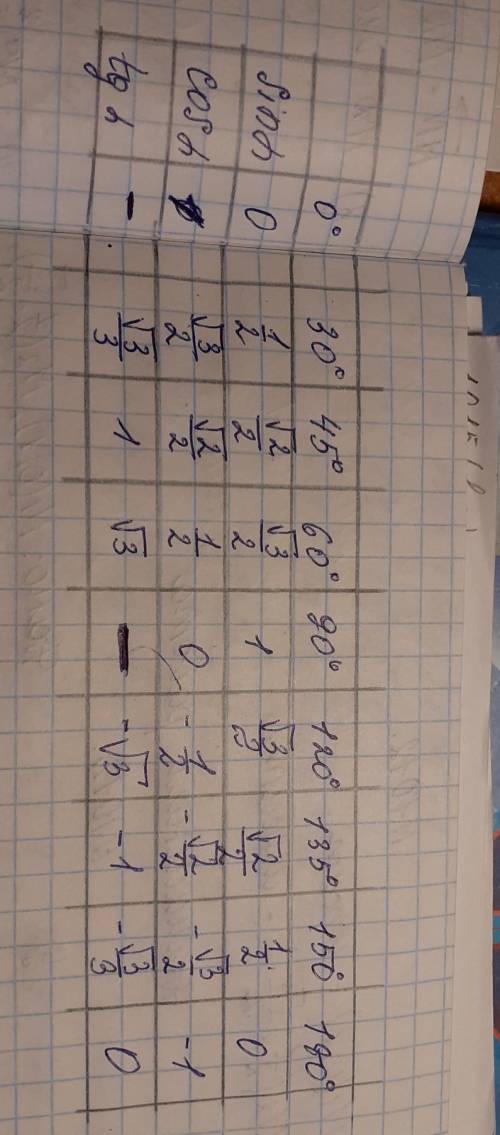 0° 30° 45° 60° 90° 120° 135° 150° 180°
sin α 0 1/2 √2/2 √3/2 1 √3/2 √2/2 1/2 0
cos α √3/2 √2/2 1/2 0 -1/2 -√2/2 -√3/2 -1
tg α - √3/3 1 √3 - -√3 -1 -√3/3 0